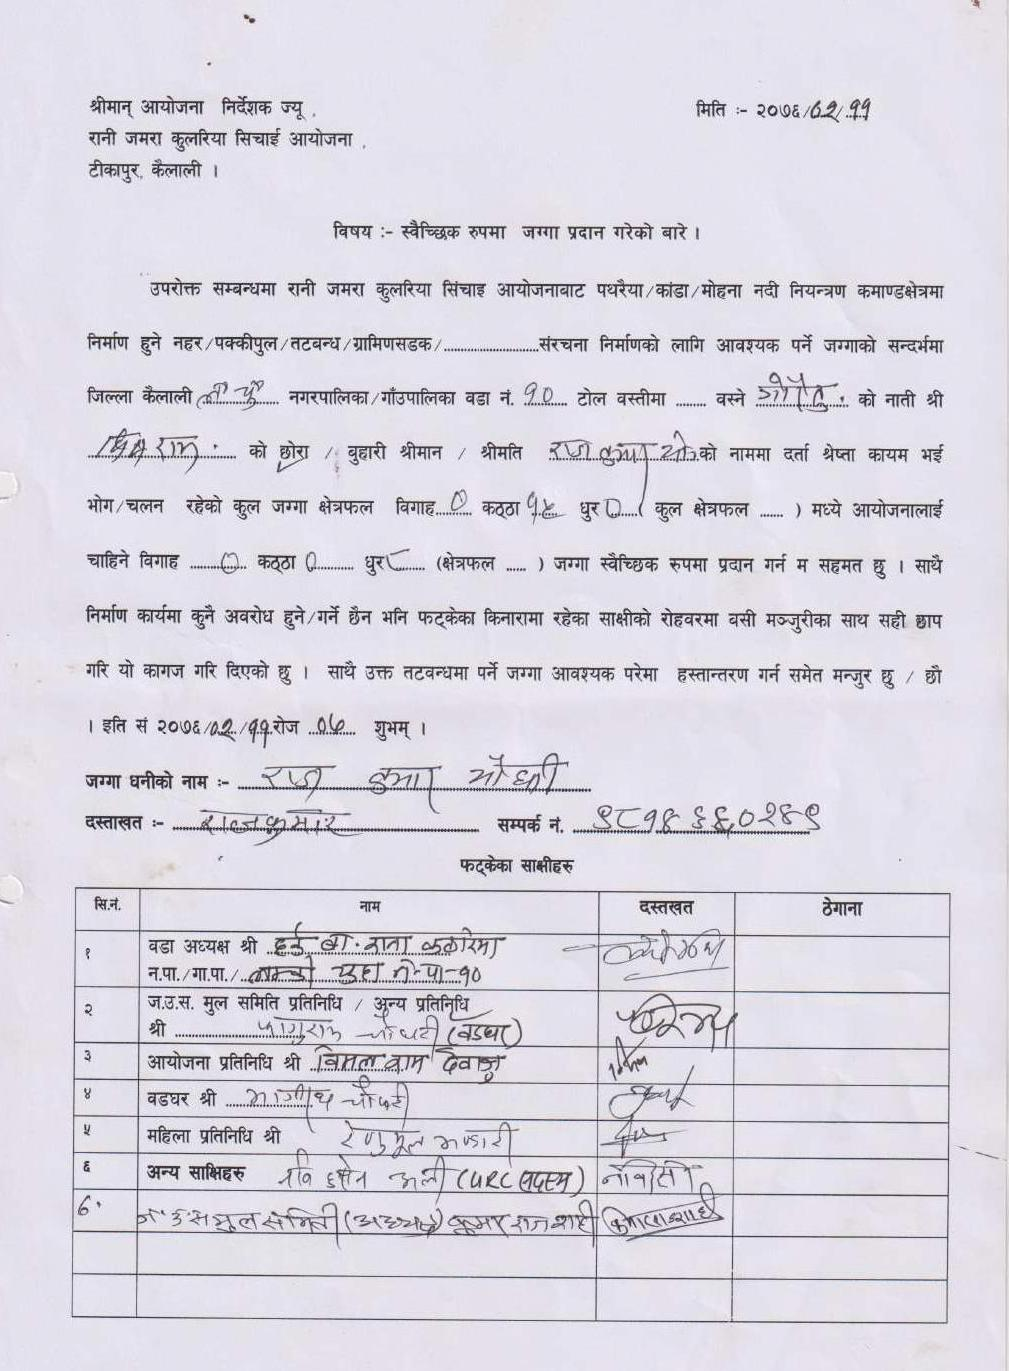 श्रीमान् आयोजना निर्देशक ज्यू ,
मिति :- २०७६/०२/११
रानी जमरा कुलरिया सिचाई आयोजना ,
टीकापुर, कैलाली ।
विषय :- स्वैच्छिक रुपमा जग्गा प्रदान गरेको बारे ।
उपरोक्त सम्बन्धमा रानी जमरा कुलरिया सिंचाइ आयोजनाबाट पथरैया/कांडा/मोहना नदी नियन्त्रण कमाण्डक्षेत्रमा
निर्माण हुने नहर/पक्कीपुल/तटबन्ध/ग्रामिणसडक/........................संरचना निर्माणको लागि आवश्यक पर्ने जग्गाको सन्दर्भमा
जिल्ला कैलाली नगरपालिका/गाँउपालिका वडा नं. १० टोल वस्तीमा ........ वस्ने को नाती श्री
को छोरा / बुहारी श्रीमान / श्रीमति राज कुमार चौ० को नाममा दर्ता श्रेष्ता कायम भई
भोग/चलन रहेको कुल जग्गा क्षेत्रफल विगाह ० कठ्ठा धुर ० ( कुल क्षेत्रफल ...... ) मध्ये आयोजनालाई
चाहिने विगाह ० कठ्ठा ० धुर (क्षेत्रफल ..... ) जग्गा स्वैच्छिक रुपमा प्रदान गर्न म सहमत छु । साथै
निर्माण कार्यमा कुनै अवरोध हुने/गर्ने छैन भनि फट्केका किनारामा रहेका साक्षीको रोहवरमा वसी मञ्जुरीका साथ सही छाप
गरि यो कागज गरि दिएको छु । साथै उक्त तटवन्धमा पर्ने जग्गा आवश्यक परेमा हस्तान्तरण गर्न समेत मन्जुर छु / छौ
। इति सं २०७६/०२/११ रोज शुभम् ।
जग्गा धनीको नाम :- राज कुमार चौधरी
दस्ताखत :- राजकुमार सम्पर्क नं.
फट्केका साक्षीहरु
सि.नं. नाम दस्तखत ठेगाना
१ वडा अध्यक्ष श्री
न.पा./गा.पा./ न.पा-१०
२ ज.उ.स. मुल समिति प्रतिनिधि / अन्य प्रतिनिधि
श्री फागुराम चौधरी (वडघर)
३ आयोजना प्रतिनिधि श्री
४ वडघर श्री चौधरी
५ महिला प्रतिनिधि श्री
६ अन्य साक्षिहरु अली (URC सदस्य)
ज.उ.स मुल समिती (अध्यक्ष)